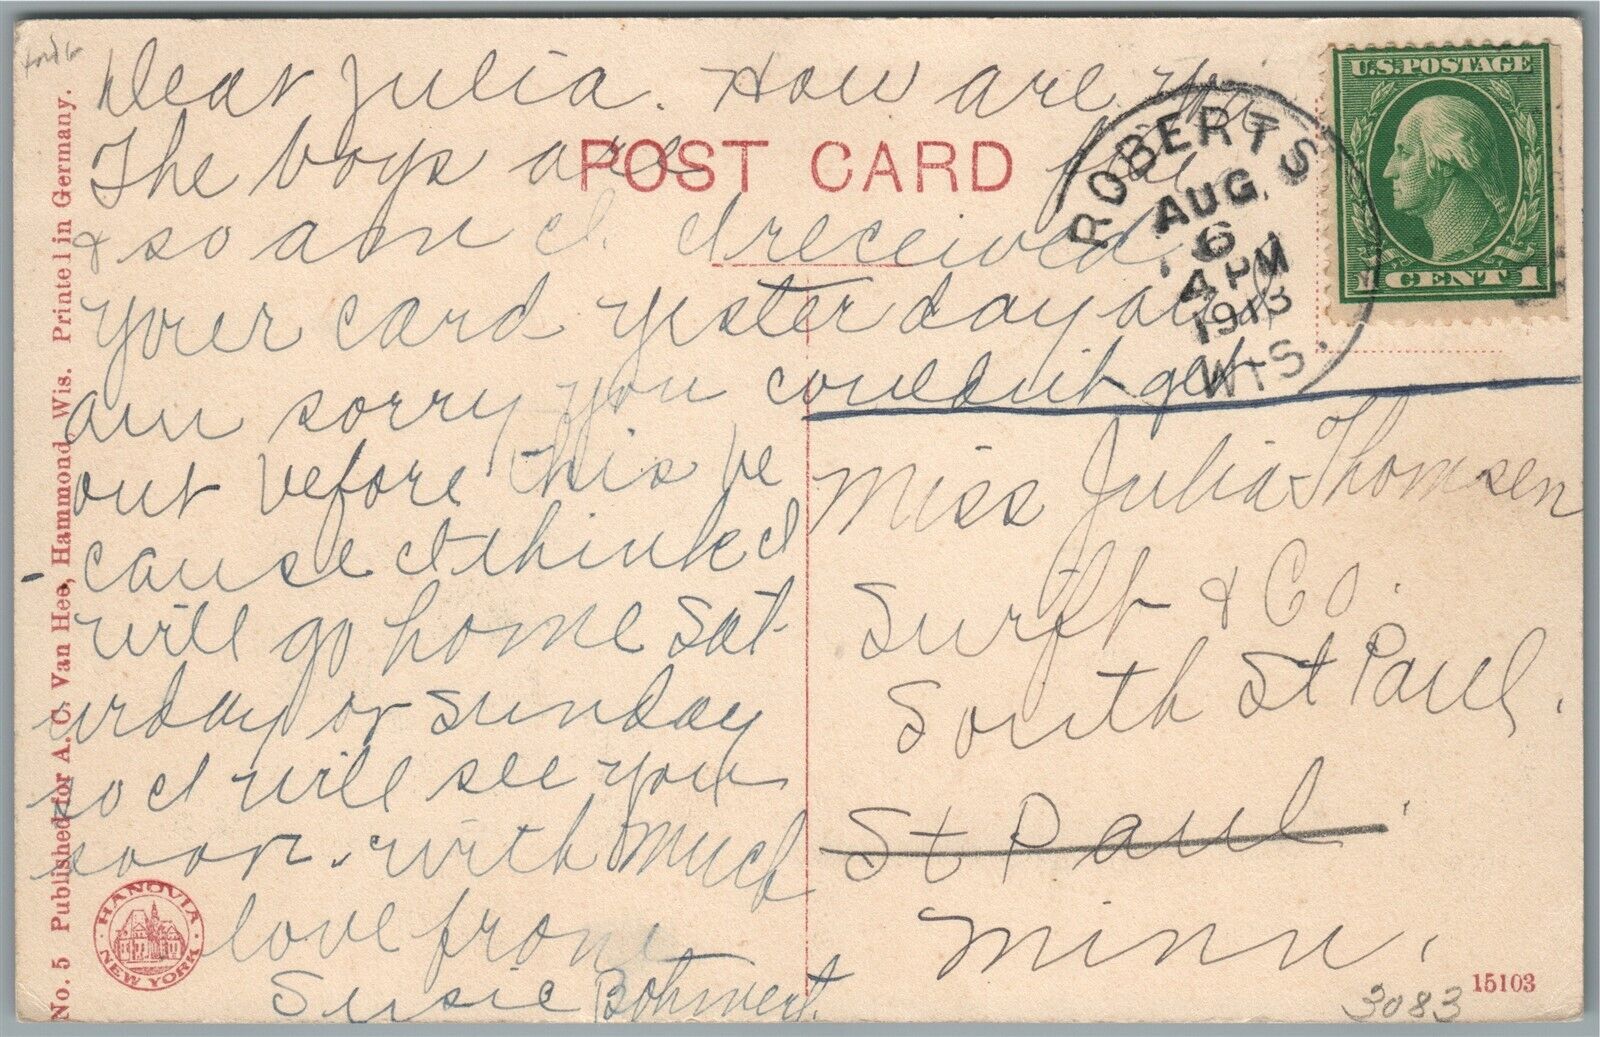 Dear Julia. How are you
The boys are fine
& so am I. I received
your card yesterday and
am sorry you couldn't get
out before this be
cause I think I
will go home Sat-
urday or Sunday
so I will see you
soon. with much
love from
Susie
POST CARD
ROBERTS
AUG.
6
4 PM
1913
WIS.
U.S. POSTAGE
1 CENT 1
Miss Julia Thomsen
Swift & Co.
South St Paul.
St Paul.
Minn.
No. 5 Published for A. C. Van Hee, Hammond, Wis. Printed in Germany.
HANOVIA
NEW YORK
15103
3083